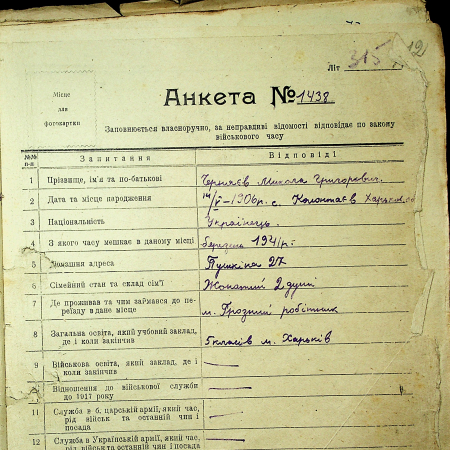 12
Літ 315
Місце
для
фотокартки
Анкета № 1438
Заповнюється власноручно, за неправдиві відомості відповідає по закону
військового часу
№№ п-п. Запитання Відповіді
1 Прізвище, ім'я та по-батькові Миколa Григорович.
2 Дата та місце народження 14/V-1906 р. с. Харьков.
3 Національність Українець.
4 З якого часу мешкає в даному місці березня 1941 р.
5 Домашня адреса Пушкіна 27
6 Сімейний стан та склад сім'ї Жонатий 2 душі
7 Де проживав та чим займався до пе-
реїзду в дане місце м. Грозний робітник
8 Загальна освіта, який учбовий заклад,
де і коли закінчив 5 класів м. Харьків
9 Військова освіта, який заклад, де і
коли закінчив
10 Відношення до військової служби
до 1917 року
11 Служба в б. царській армії, який час,
рід військ та останній чин і
посада
12 Служба в Українській армії, який час,
рід військ та останній чин і посада